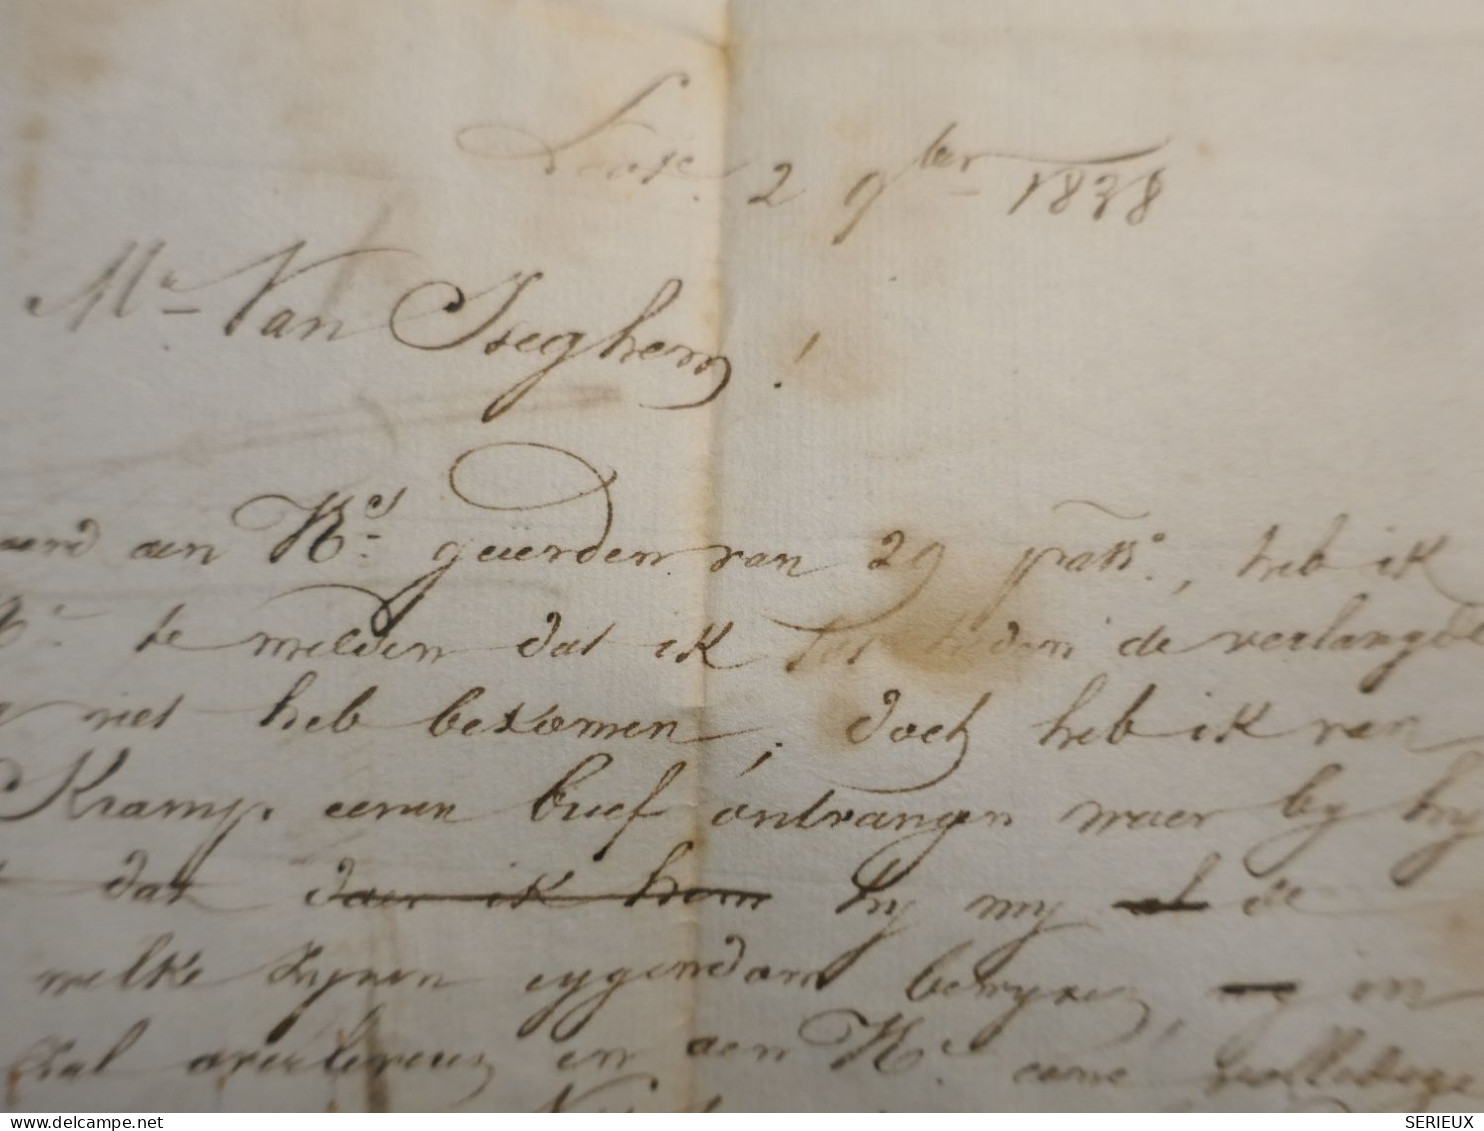 2 9ber 1838
Mr Van Iseghem !
aen Ued geëerden van 29 pass°., heb ik
te melden dat ik tot heden de verlangde
niet heb bekomen, doch heb ik van
Kramp. eenen brief ontvangen waer by hy
dat daer ik hem hy my de
welke zynen eygendom bewyzen, in
zal overleveren en aen Ue eene volledige
SERIEUX